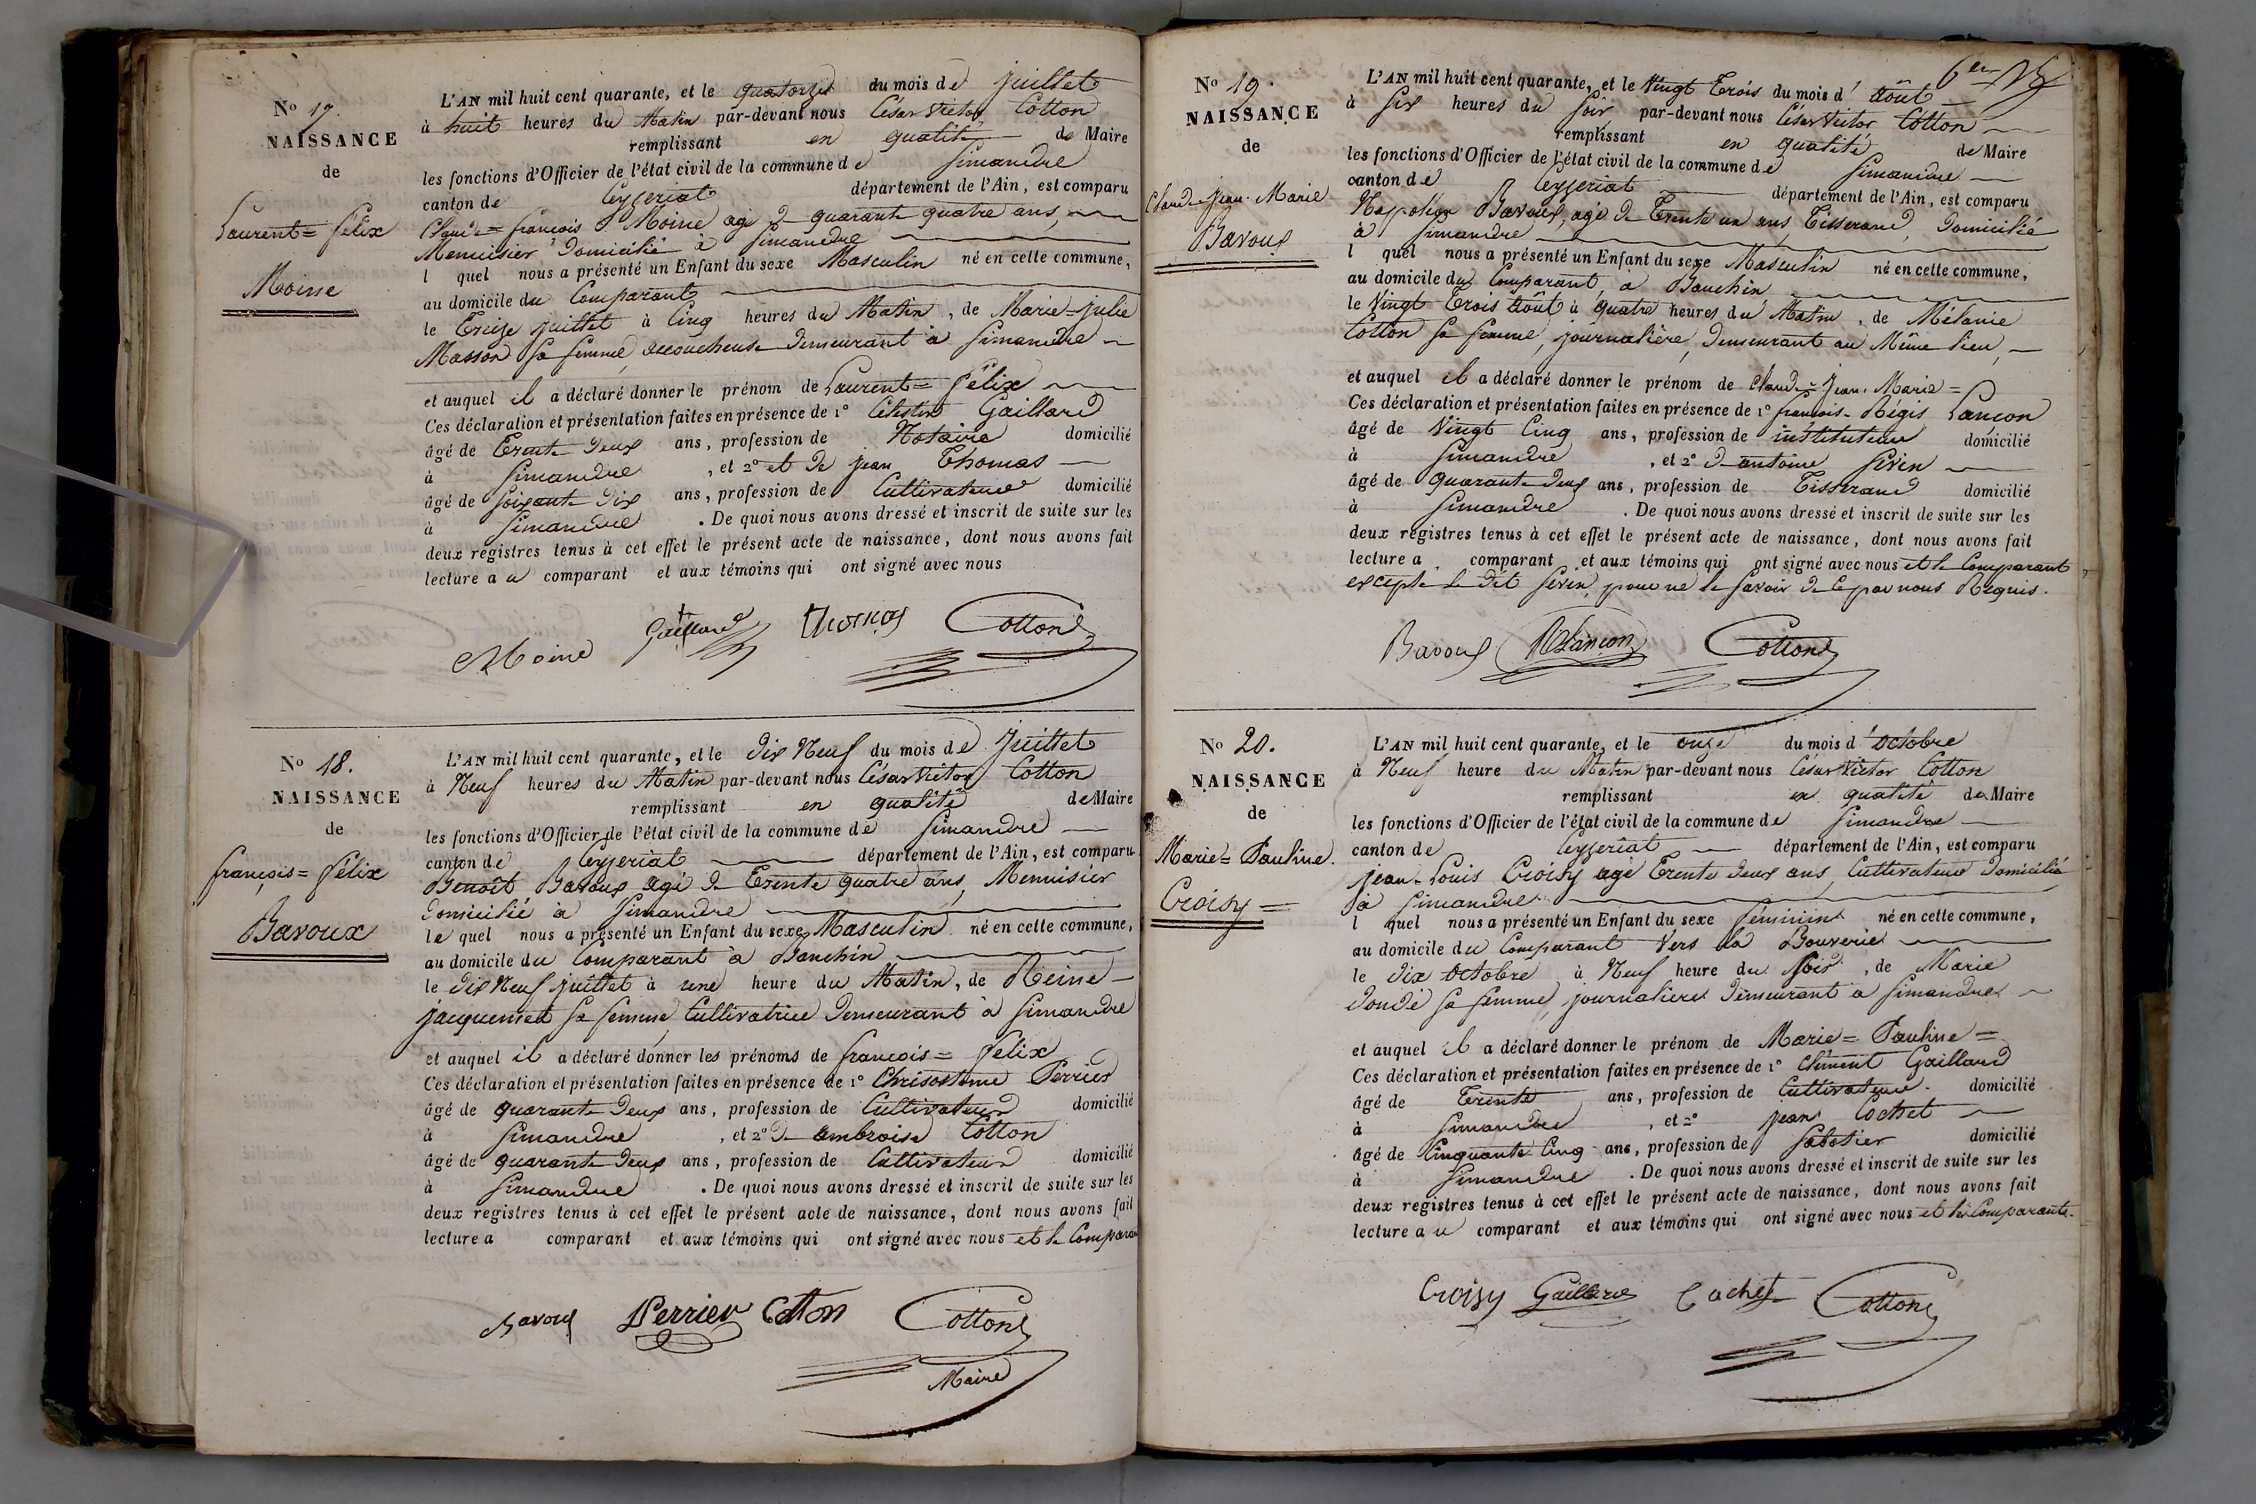 No 17.
NAISSANCE
de
Laurent=Félix
Moine
L'AN mil huit cent quarante, et le quatorze du mois de juillet
à huit heures du Matin par-devant nous César Victor Cotton
remplissant en qualité de Maire
les fonctions d'Officier de l'état civil de la commune de Simandre
canton de Ceyzeriat département de l'Ain, est comparu
Claude=françois Moine agé de quarante quatre ans,
Menuisier Domicilié à Simandre
l quel nous a présenté un Enfant du sexe Masculin né en cette commune,
au domicile du Comparant
le Treize juillet à Cinq heures du Matin, de Marie=julie
Masson Sa femme, accoucheuse Demeurant à Simandre
et auquel il a déclaré donner le prénom de Laurent=Félix
Ces déclaration et présentation faites en présence de 1° Célestin Gaillard
âgé de Trente Deux ans, profession de Notaire domicilié
à Simandre, et 2° et de jean Thomas
âgé de Soixante Dix ans, profession de Cultivateur domicilié
à Simandre. De quoi nous avons dressé et inscrit de suite sur les
deux registres tenus à cet effet le présent acte de naissance, dont nous avons fait
lecture a u comparant et aux témoins qui ont signé avec nous
Moine Gaillard Thomas Cotton
No 18.
NAISSANCE
de
françois=Félix
Bavoux
L'AN mil huit cent quarante, et le Dix Neuf du mois de Juillet
à Neuf heures du Matin par-devant nous César Victor Cotton
remplissant en qualité de Maire
les fonctions d'Officier de l'état civil de la commune de Simandre
canton de Ceyzeriat département de l'Ain, est comparu
Benoît Bavoux agé de Trente quatre ans, Menuisier
Domicilié à Simandre
le quel nous a présenté un Enfant du sexe Masculin né en cette commune,
au domicile du Comparant à Banchin
le Dix Neuf juillet à une heure du Matin, de Reine
jacquemet Sa femme Cultivatrice Demeurant à Simandre
et auquel il a déclaré donner les prénoms de françois=Félix
Ces déclaration et présentation faites en présence de 1° Chrisostome Perrier
âgé de quarante Deux ans, profession de Cultivateur domicilié
à Simandre, et 2° De ambroise Cotton
âgé de quarante Deux ans, profession de Cultivateur domicilié
à Simandre. De quoi nous avons dressé et inscrit de suite sur les
deux registres tenus à cet effet le présent acte de naissance, dont nous avons fait
lecture a comparant et aux témoins qui ont signé avec nous et le Comparant
Bavoux Perrier Cotton Cotton
Maire
No 19.
NAISSANCE
de
Claude-jean-Marie
Bavoux
L'AN mil huit cent quarante, et le Vingt Trois du mois d'août
à Six heures du Soir par-devant nous César Victor Cotton
remplissant en qualité de Maire
les fonctions d'Officier de l'état civil de la commune de Simandre
canton de Ceyzeriat département de l'Ain, est comparu
Napoléon Bavoux, agé de Trente un ans, Tisserand, Domicilié
à Simandre
l quel nous a présenté un Enfant du sexe Masculin né en cette commune,
au domicile du Comparant, à Banchin
le Vingt Trois août à quatre heures du Matin, de Mélanie
Cotton Sa femme, journalière, Demeurant au Même lieu,
et auquel il a déclaré donner le prénom de Claude=jean-Marie=
Ces déclaration et présentation faites en présence de 1° françois-Régis Lançon
âgé de Vingt Cinq ans, profession de instituteur domicilié
à Simandre, et 2° D antoine Sevin
âgé de quarante Deux ans, profession de Tisserand domicilié
à Simandre. De quoi nous avons dressé et inscrit de suite sur les
deux registres tenus à cet effet le présent acte de naissance, dont nous avons fait
lecture a comparant et aux témoins qui ont signé avec nous et le Comparant
excepté le dit Sevin, pour ne le Savoir De ce par nous Requis.
Bavoux RLançon Cotton
No 20.
NAISSANCE
de
Marie=Pauline.
Croisy=
L'AN mil huit cent quarante, et le onze du mois d'octobre
à Neuf heure du Matin par-devant nous César Victor Cotton
remplissant en qualité de Maire
les fonctions d'Officier de l'état civil de la commune de Simandre
canton de Ceyzeriat département de l'Ain, est comparu
jean-Louis Croisy agé Trente Deux ans, Cultivateur Domicilié
à Simandre
l quel nous a présenté un Enfant du sexe féminin né en cette commune,
au domicile du Comparant Vers la Bouverie
le Dix octobre à Neuf heure du Soir, de Marie
Dondé Sa femme, journaliere Demeurant à Simandre
et auquel il a déclaré donner le prénom de Marie=Pauline=
Ces déclaration et présentation faites en présence de 1° Clément Gaillard
âgé de Trente ans, profession de Cultivateur. domicilié
à Simandre, et 2° jean Cochet
âgé de Cinquante Cinq ans, profession de Sabotier domicilié
à Simandre. De quoi nous avons dressé et inscrit de suite sur les
deux registres tenus à cet effet le présent acte de naissance, dont nous avons fait
lecture a u comparant et aux témoins qui ont signé avec nous et les Comparants.
Croisy Gaillard Cochet Cotton